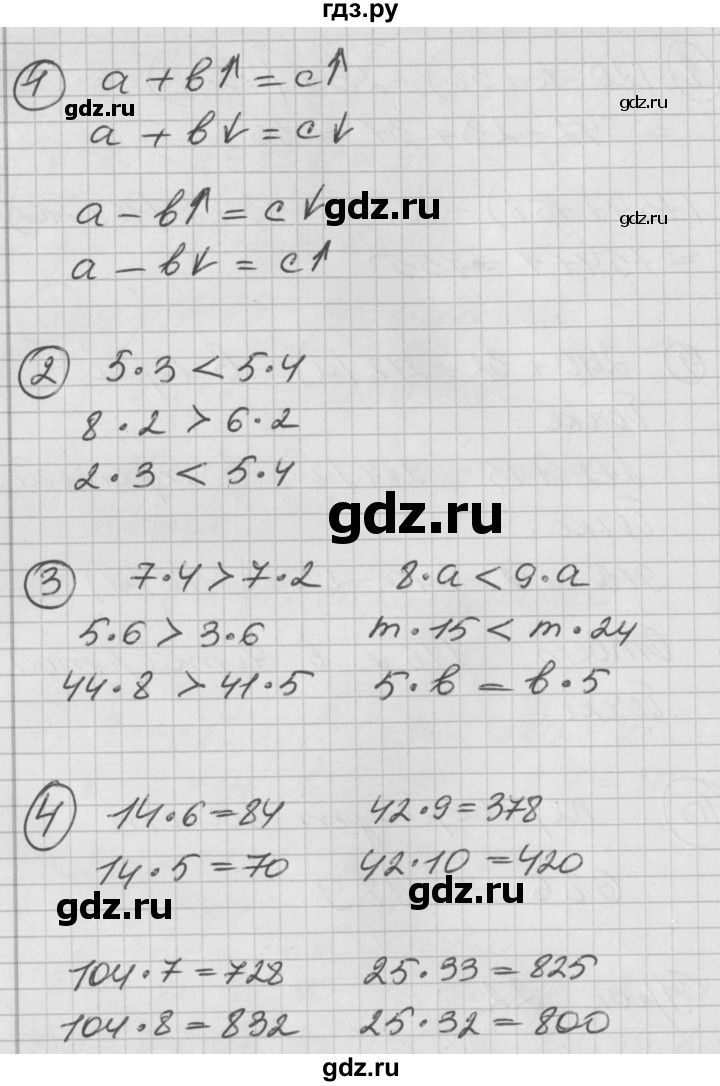 гдз.ру
1 a + в↑ = c↑
gdz.ru
gdz.ru
a + в↓ = c↓
a − в↑ = c↓
gdz.ru
gdz.ru
a − в↓ = c↑
2 5·3 < 5·4
8·2 > 6·2
2·3 < 5·4
gdz.ru
3 7·4 > 7·2 8·a < 9·a
5·6 > 3·6 m·15 < m·24
44·8 > 41·5 5·в = в·5
4 14·6 = 84 42·9 = 378
14·5 = 70 42·10 = 420
gdz.ru
gdz.ru
104·7 = 728 25·33 = 825
104·8 = 832 25·32 = 800
gdz.ru